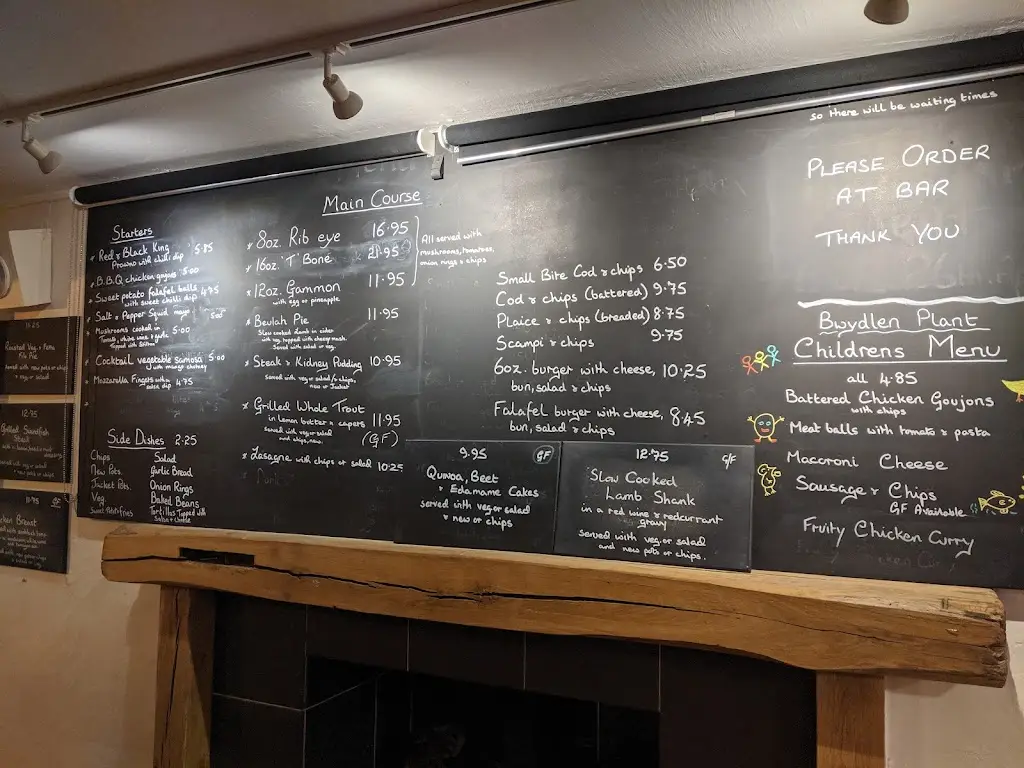 Starters
* Red & Black King 5.85
Prawns with chilli dip
* B.B.Q chicken goujons 5.00
* Sweet potato falafel balls 4.95
with sweet chilli dip
* Salt & Pepper Squid mayo 5.00
* Mushrooms cooked in
Tomato, white wine & garlic 5.00
Topped with Stilton
* Cocktail vegetable samosa 5.00
with mango chutney
* Mozzarella Fingers with a
salsa dip 4.75
Side Dishes 2.25
Chips Salad
New Pots. Garlic Bread
Jacket Pots. Onion Rings
Veg. Baked Beans
Sweet Potato fries Tortillas Topped with
Salsa & Cheese
Main Course
* 8oz. Rib eye 16.95
* 16oz 'T' Bone 21.95
All served with
mushrooms, tomatoes,
onion rings & chips
* 12oz. Gammon 11.95
with egg or pineapple
* Beulah Pie 11.95
Slow cooked Lamb in cider
with veg. topped with cheesy mash
Served with salad or veg.
* Steak & Kidney Pudding 10.95
served with veg or salad & chips,
new or Jacket
* Grilled Whole Trout
in Lemon butter & capers 11.95
served with veg or salad
and chips, new (GF)
* Lasagne with chips or salad 10.25
Small Bite Cod & chips 6.50
Cod & chips (battered) 9.75
Plaice & chips (breaded) 8.75
Scampi & chips 9.75
6oz. burger with cheese, 10.25
bun, salad & chips
Falafel burger with cheese, 8.45
bun, salad & chips
9.95 GF
Quinoa, Beet
& Edamame Cakes
served with veg or salad
& new or chips
12.75 GF
Slow Cooked
Lamb Shank
in a red wine & redcurrant
gravy
served with veg, or salad
and new pots or chips.
so there will be waiting times
Please Order
at Bar
Thank You
Bwydlen Plant
Childrens Menu
all 4.85
Battered Chicken Goujons
with chips
Meat balls with tomato & pasta
Macaroni Cheese
Sausage & Chips
GF Available
Fruity Chicken Curry
11.25
Roasted Veg & Fetta
Filo Pie
served with new pots or chips
& veg or salad
12.95
Grilled Swordfish
Steak
10.95 GF
Chicken Breast